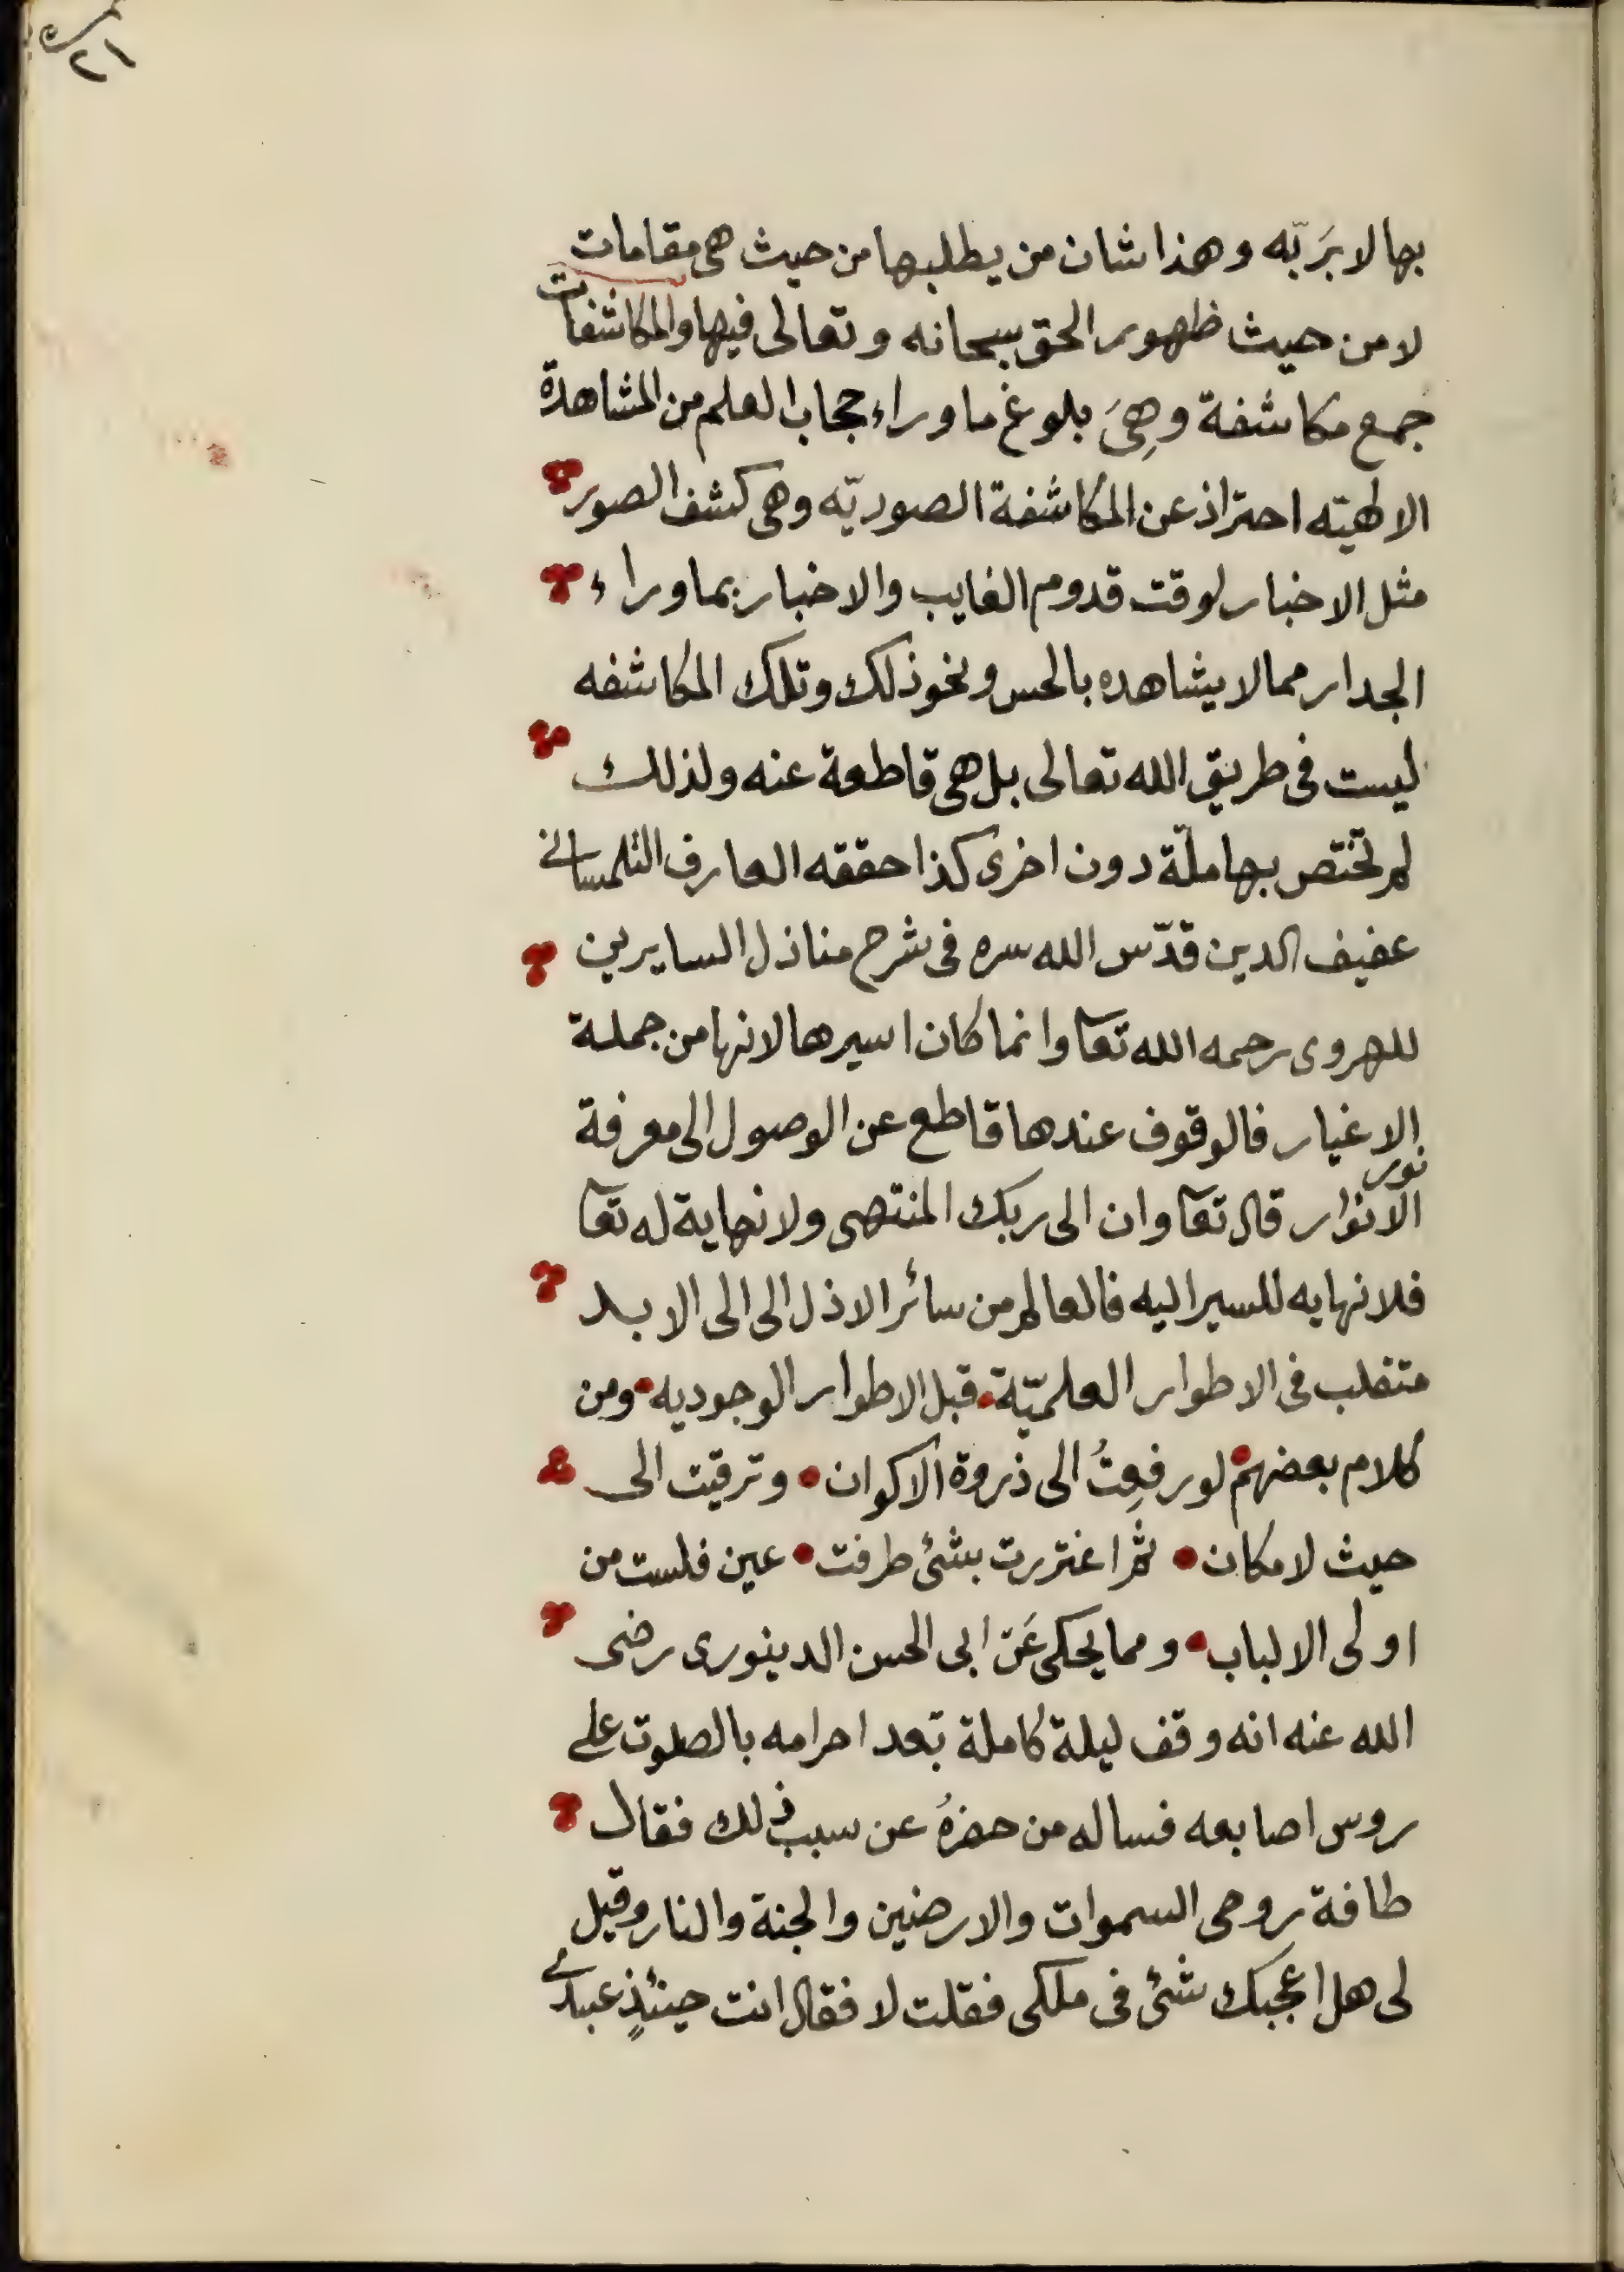 ٢١
بها لا بَربّه وهذا شان من يطلبها من حيث هى مقامات
لا من حيث ظهور الحق سبحانه وتعالى فيها والمكاشفات
جمع مكاشفة وهِىَ بلوغ ما وراء حجاب العلم من المشاهدة
الالهيّه احتراز عن المكاشفة الصوريّه وهى كشف الصور
مثل الاخبار لوقت قدوم الغايب والاخبار بما وراء
الجدار مما لا يشاهده بالحس ونحو ذلك وتلك المكاشفه
ليست فى طريق الله تعالى بل هى قاطعة عنه ولذلك
لم تختص بها ملّة دون اخرى كذا حققه العارف التلمسانى
عفيف الدين قدّس الله سره فى شرح منازل السايرين
للهروى رحمه الله تعآ وانما كان اسيرها لانها من جملة
الاغيار فالوقوف عندها قاطع عن الوصول الى معرفة
نور
الانوار قال تعآ وان الى ربك المنتهى ولا نهاية له تعآ
فلا نهايه للسير اليه فالعالم من سائر الازل الى الى الابد
متقلب فى الاطوار العلميّة قبل الاطوار الوجوديه ومن
كلام بعضهم لو رفِعتُ الى ذروة الاكوان وترقيت الى
حيث لا مكان ثم اغتررت بشئ طرفت عين فلست من
اولى الالباب ومما يحكى عَنْ ابى الحسن الدينورى رضى
الله عنه انه وقف ليلة كاملة بَعد احرامه بالصلوت على
روس اصابعه فساله من حضرهُ عن سبب ذلك فقال
طافة روحى السموات والارضين والجنة والنار وقيل
لى هل اعجبك شئ فى ملكى فقلت لا فقال انت حينئذٍ عبدى